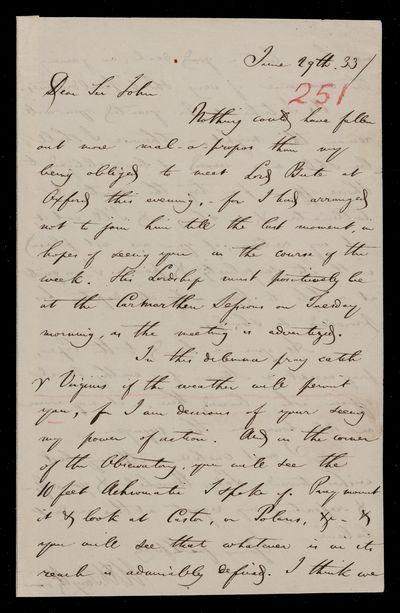 June 29th. 33/
251
Dear Sir John
Nothing could have fallen
out more mal-a-propos than my
being obliged to meet Lord Bute at
Oxford this evening, - for I had arranged
not to join him till the last moment, in
hopes of seeing you in the course of the
week. His Lordship must positively be
at the Carmarthen Sessions on Tuesday
morning, as the meeting is advertized.
In this dilemma pray catch
γ Virginis if the weather will permit
you, - for I am desirous of your seeing
my power of action. And in the corner
of the Observatory, you will see the
10 feet Achromatic I spoke of. Pray mount
it & look at Castor, or Polaris, &c - &
you will see that whatever is in its
reach is admirably defined. I think we